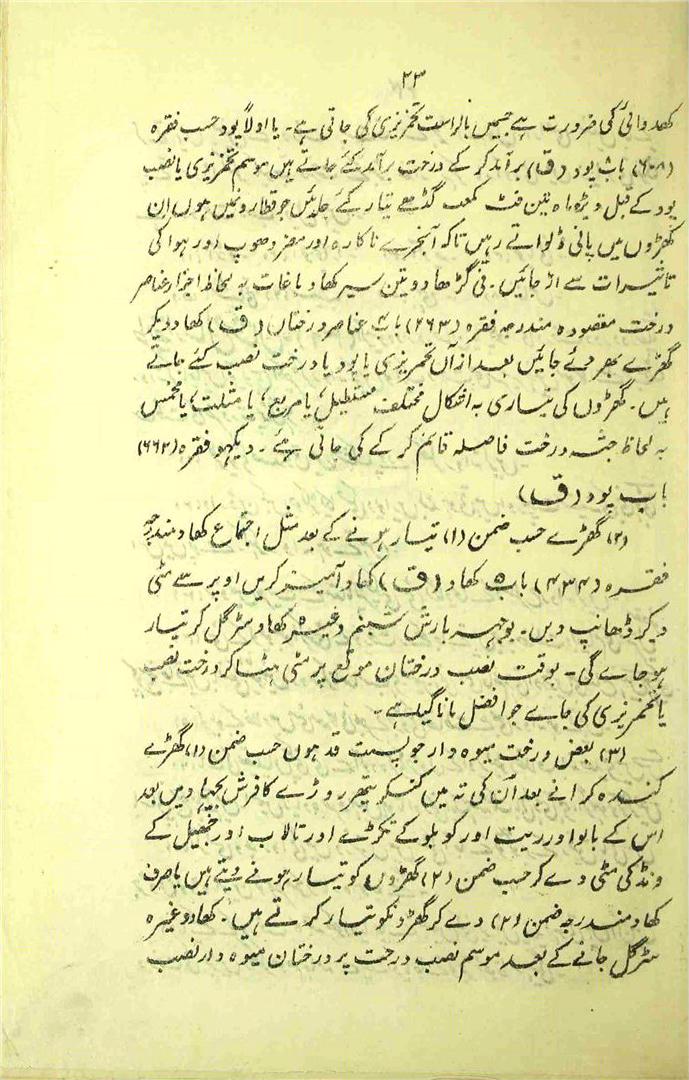 ۲۳
کھدوائی کی ضرورت ہے جسمیں بالراست تخمریزی کی جاتی ہے۔ یا اولاً پود حسب فقرہ
(۶۰۸) باب پود (ق) برآمد کرکے درخت برآمد کئے جاتے ہیں موسم تخمریزی یا نصب
پود کے قبل دیڑہ ماہ تین فٹ مکعب گڈھے تیار کئے جائیں جو قطار ونمیں ہوں ان
گھڑوں میں پانی ڈلواتے رہیں تاکہ آبخرے ناکارہ اور مضر دھوپ اور ہوا کی
تاثیرات سے اڑ جائیں۔ فی گڑھا دو تین سیر کھاد باغات بہ لحاظ اجزار عناصر
درخت مقصودہ مندرجہ فقرہ (۲۶۳) باب عناصر درختاں (ق) کھاد دیکر
گھڑے بھر دئے جائیں بعد ازآں تخمریزی یا پود یا درخت نصب کئے جاتے
ہیں۔ گھڑوں کی تیاری بہ اشکال مختلف مستطیل، یا مربع، یا مثلث، یا مخمس
بہ لحاظ جثہ درخت فاصلہ قائم کر کے کی جاتی ہے۔ دیکھو فقرہ (۶۶۲)
باب پود (ق)
(۲) گھڑے حسب ضمن (۱) تیار ہونے کے بعد مثل اجتماع کھاد مندرجہ
فقرہ (۴۳۴) باب کھاد (ق) کھاد آمیز کریں اوپر سے مٹی
دیکر ڈھانپ دیں۔ بوجہہ بارش شبنم وغیرہ کھاد سڑ گل کر تیار
ہو جاے گی۔ بوقت نصب درختان موقع پر مٹی ہٹا کر درخت نصب
یا تخمریزی کی جاے جو افضل مانا گیا ہے۔
(۳) بعض درخت میوہ دار جو پست قد ہوں حسب ضمن (۱) گھڑے
کندہ کرانے بعد اُن کی تہ میں کنکر پتھر روڑے کا فرش بچھا دیں بعد
اس کے بالو اور ریت اور کویلو کے ٹکڑے اور تالاب اور جھیل کے
ونڈ کی مٹی دے کر حسب ضمن (۲) گھڑوں کو تیار ہونے دیتے ہیں یا صرف
کھاد مندرجہ ضمن (۲) دے کر گھڑونکو تیار کرتے ہیں۔ کھاد وغیرہ
سڑ گل جانے کے بعد موسم نصب درخت پر درختان میوہ دار نصب